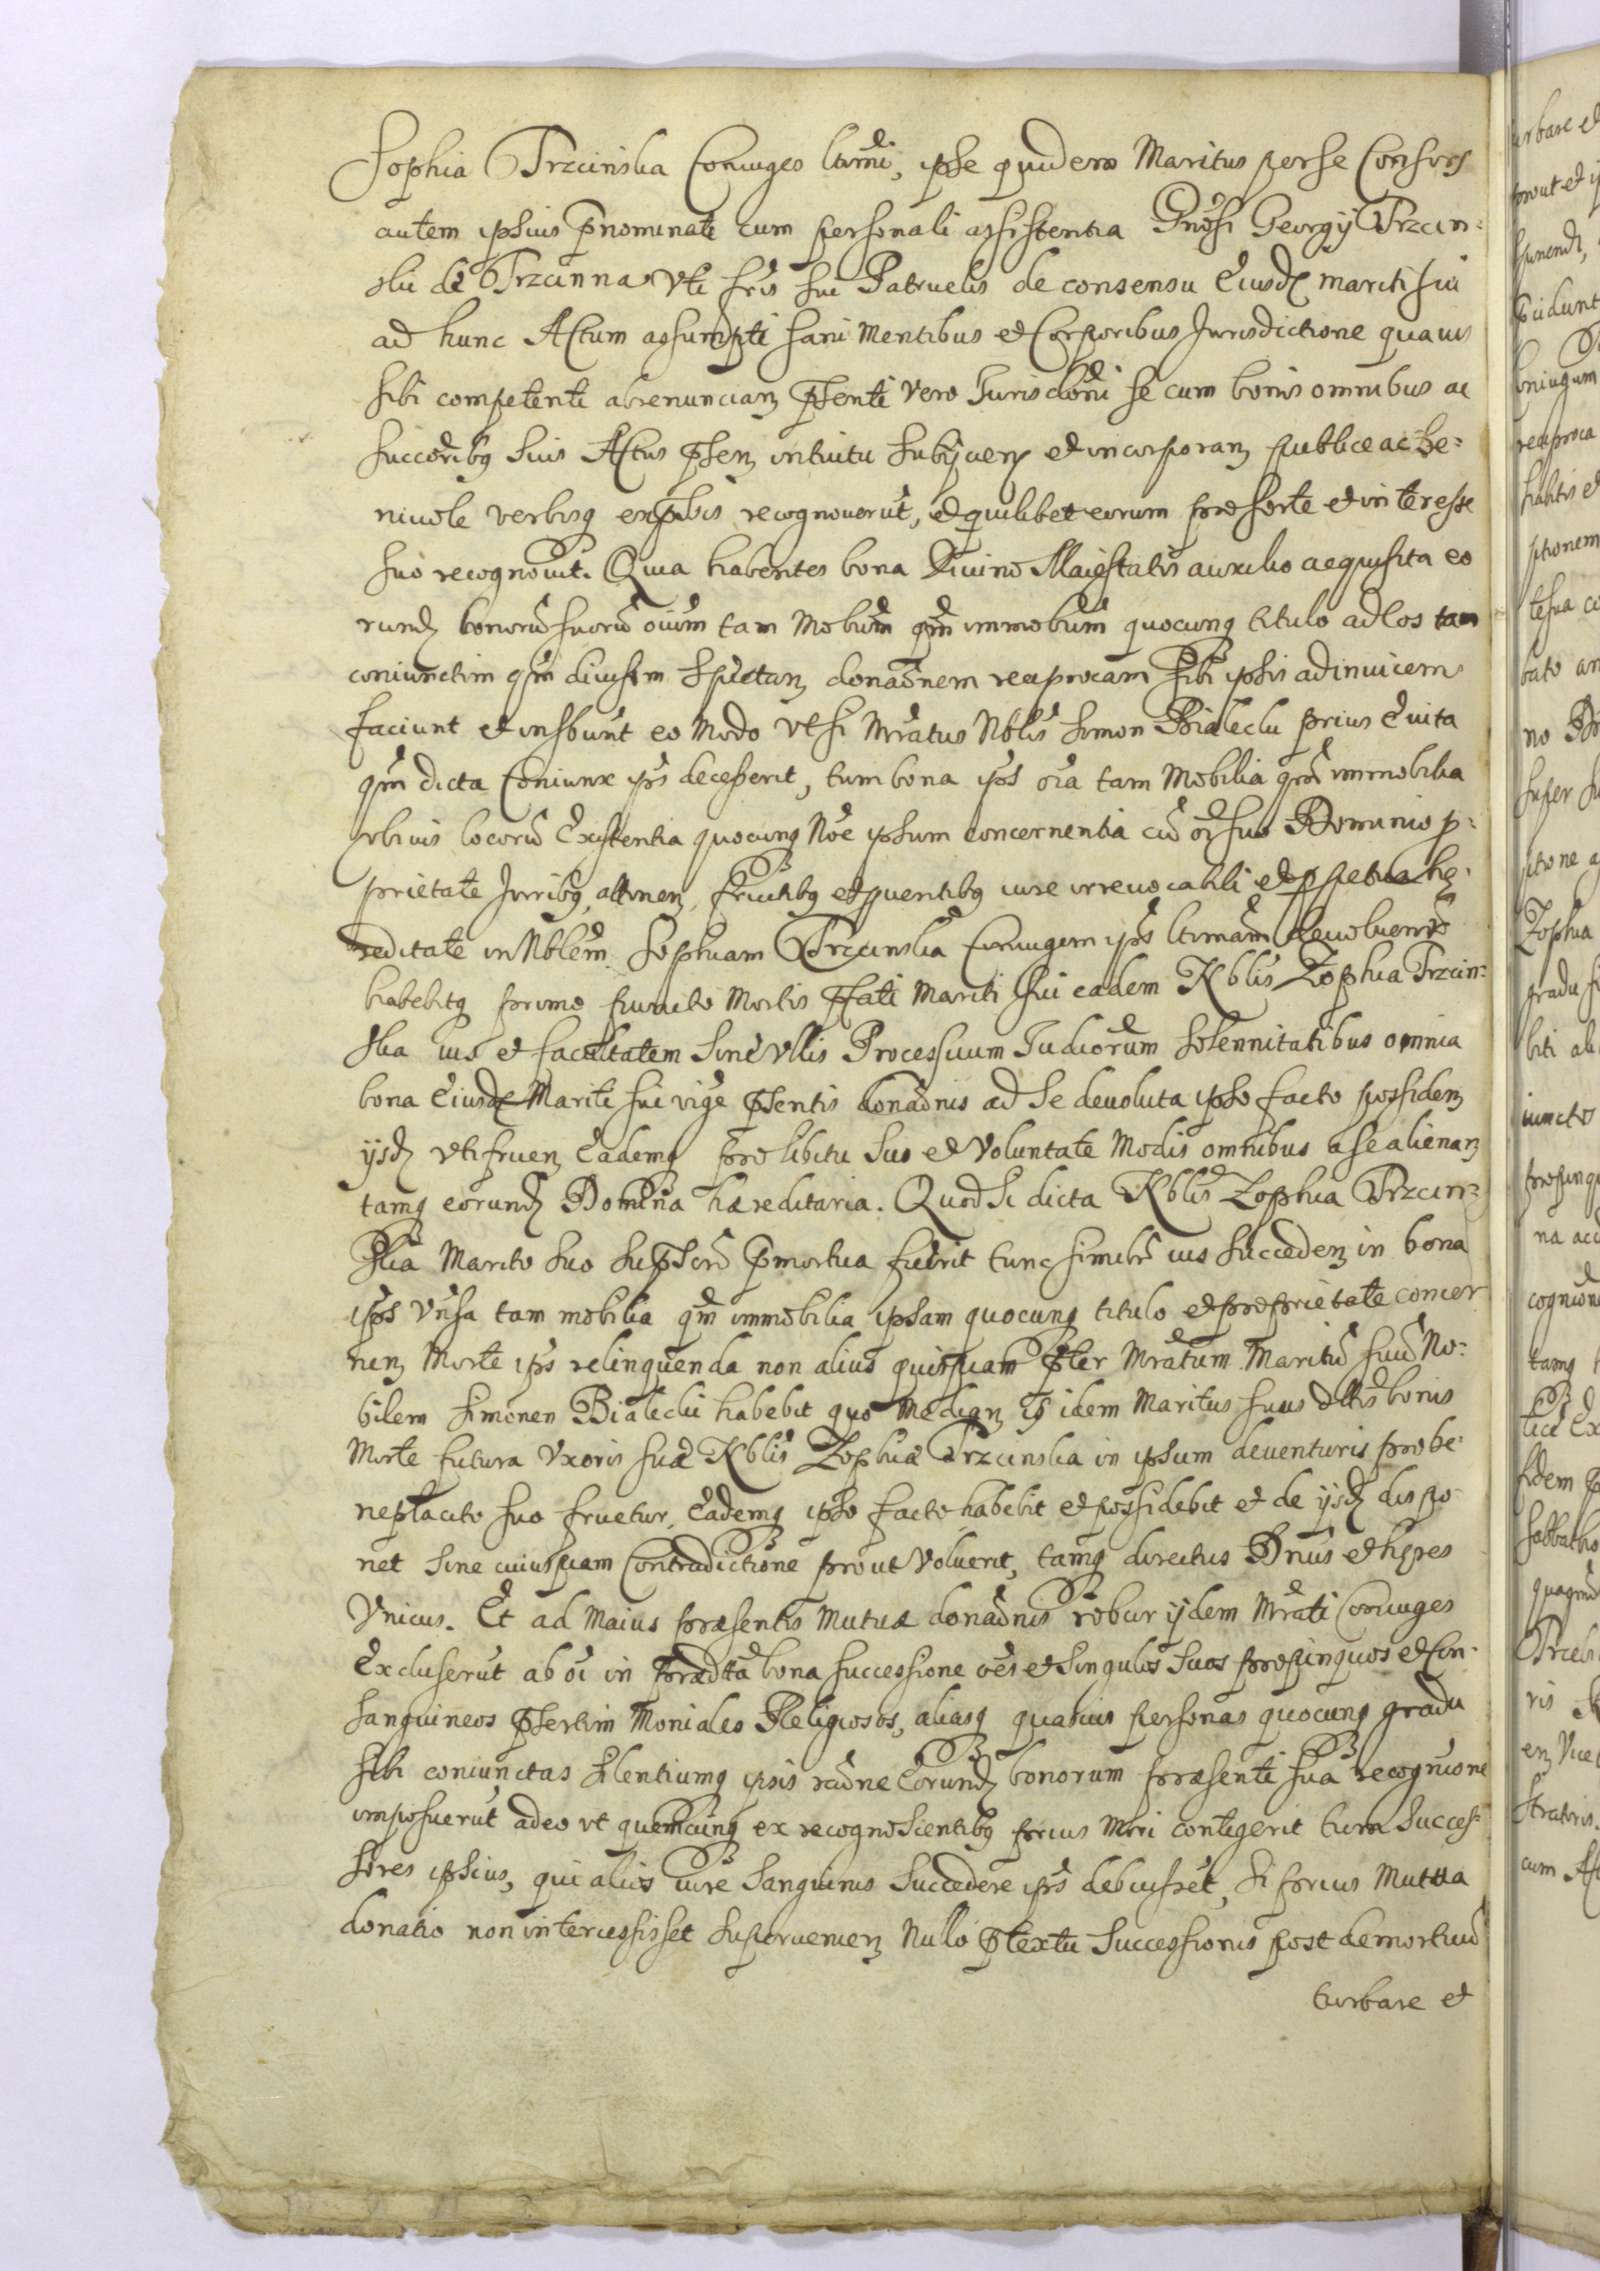 Sophia Trzcinska Coniuges ltimi, ipse quidem Maritus per se Consors
autem ipsius pnominate cum personali assistentia Gnosi Georgij Trzcin:
ski de Trzcinna Uti fris sui Patruelis de consensu Eiusd mariti sui
ad hunc Actum assumpti sani Mentibus et Corporibus Jurisdictione quavis
sibi competenti abrenuncian psenti vero Jurisdoni se cum bonis omnibus ac
succoribq suis Actus psen intuitu subijcien et incorporan publice ac be:
nivole verbisq expssis recognoverut, et quilibet eorum pro sorte et interesse
suo recognovit. Quia habentes bona Divino Maiestatis auxilio acquisita eo
rund bonoru suoru oium tam Mobium qm immobium quocunq titulo ad eos tam
coniunctim qm divisim spectan donaonem reciprocam sibi ipsis adinvicem
faciunt et insbunt eo Modo Ut si Mratus Nblis Simon Bialecki prius E vita
qm dicta Coniunx ips decesserit, tum bona ips oia tam Mobilia qm immobilia
ubivis locoru Existentia quocunq Noe ipsum concernentia cu oi suo Dominio p:
prietate Juribq, attinen, fructibq et pventibq iure irrevocabili et ppetua he:
reditate in Nblem Sophiam Trzcinska Coniugem ips ltimam devolventr
habebitq primo funcito Mortis pfati Mariti sui eadem Nblis Zophia Trzcin:
ska ius et facultatem sine Ullis Processuum Judiciorum solennitatibus omnia
bona Eiusd Mariti sui vige psentis donaonis ad se devoluta ipso facto possiden
ijsd utifruen Eademq pro libitu suo et Voluntate Modis omnibus a se alienan
tamq eorund Domina haereditaria. Quod si dicta Nblis Zophia Trzcin:
ska Marito suo supscro pmortua fuerit tunc simitr ius succeden in bona
ips Unsa tam mobilia qm immobilia ipsam quocunq titulo et proprietate concer
nen Morte ips relinquenda non alius quispiam pter Mratum Maritu suu No:
bilem Simonen Bialecki habebit quo Median is idem Maritus suus dttis bonis
Morte futura Uxoris suae Nblis Zophiae Trzcinska in ipsum deventuris pro be:
neplacito suo fruetur, Eademq ipso facto habebit et possidebit et de ijsd dispo
net sine cuiuspiam Contradictione prout Voluerit, tamq directus Dnus et heres
Unicus. Et ad Maius praesentis Mutuae donaonis robur ijdem Mrati Coniuges
Excluserut ab oi in praedtta bona successione oes et singulos suos propinquos et Con:
sanguineos psertim Moniales Religiosos, aliasq quasvis personas quocunq gradu
sibi coniunctas silentiumq ipsis raone Eorund bonorum praesenti sua recognione
imposuerut adeo ut quemcunq ex recognoscentibq prius Mori contigerit tum succes:
sores ipsius, qui alias iure Sanguinis succedere ips debuisset, si prius Mutua
donatio non intercessisset supervenien Nullo ptextu successionis post demortuu
turbare et